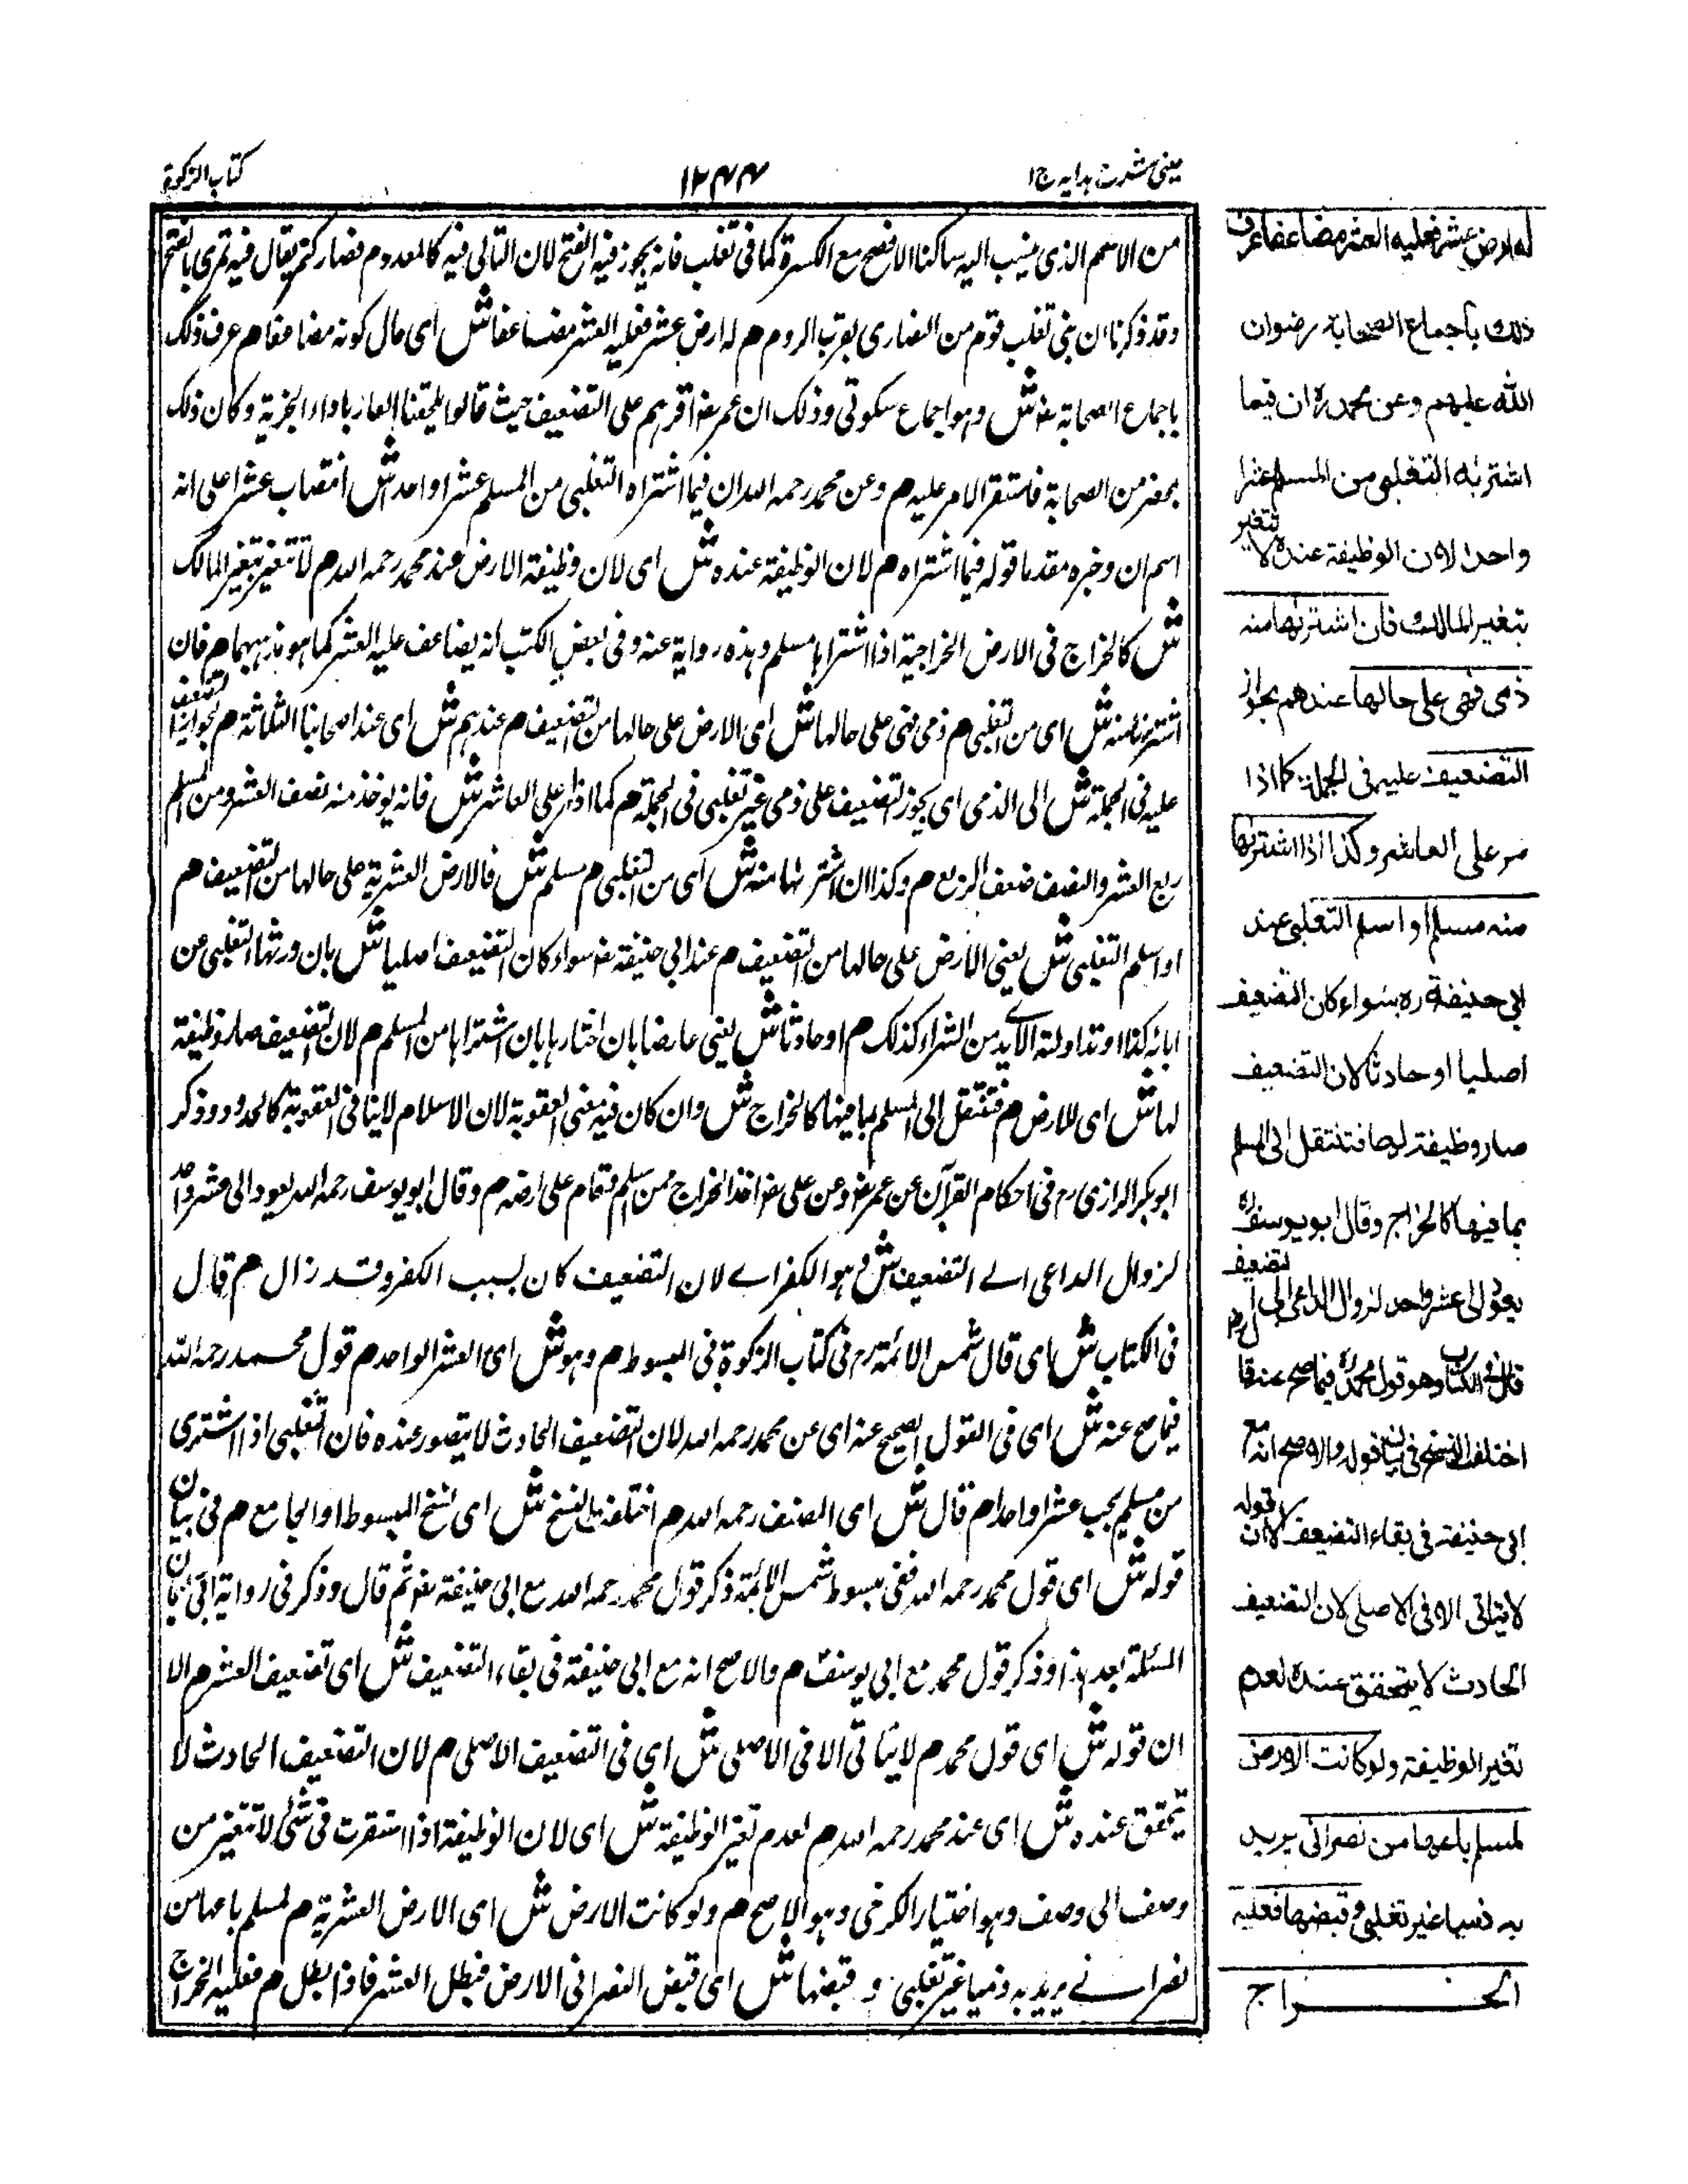 عینی شرح ہدایہ ج ا
۱۲۴۴
کتاب الزکوة
من الاسم الذی ینسب الیه ساکنا الافصح مع الکسرة کما فی تغلب فانه یجوز فیه الفتح لان التالی فیه کالمعدوم م فصار کنمر یقال فیه نمری بالفتح
وقد ذکرنا ان بنی تغلب قوم من النصاری بقرب الروم م له ارض عشر فعلیه العشر مضاعفا ش ای حال کونه مضاعفا م عرف ذلک
باجماع الصحابة رض ش وہو اجماع سکوتی وذلک ان عمر رض اقرہم علی التضعیف حیث قالوا یلحقنا العار باداء الجزیة وکان ذلک
بمحضر من الصحابة فاستقر الامر علیه م وعن محمد رحمه الله ان فیما اشتراه التغلبی من المسلم عشرا واحدا ش انتصاب عشرا علی انه
اسم ان وخبره مقدما قوله فیما اشتراه م لان الوظیفة عنده ش ای لان وظیفة الارض عند محمد رحمه الله م لا تتغیر بتغیر المالک
ش کالخراج فی الارض الخراجیة اذا اشتراہا مسلم وہذه روایة عنه وفی بعض الکتب انه یضاعف علیه العشر کما ہو مذہبہما م فان
اشترہا منه ش ای من التغلبی م ذمی فہی علی حالها ش ای الارض علی حالها من التضعیف م عندہم ش ای عند اصحابنا الثلاثة م لجواز التضعیف
علیه فی الجملة ش الی الذمی ای یجوز التضعیف علی ذمی غیر تغلبی فی الجملة م کما اذا مر علی العاشر ش فانه یوخذ منه نصف العشر ومن المسلم
ربع العشر والنصف ضعف الربع م وکذا ان اشتراہا منه ش ای من التغلبی م مسلم ش فالارض العشریة علی حالها من التضعیف م
او اسلم التغلبی ش یعنی الارض علی حالها من التضعیف م عند ابی حنیفة رض سواء کان التضعیف اصلیا ش بان ورثها التغلبی من
ابائه کذا او تداولته الایدے من الشراء کذلک م او حادثا ش یعنی عارضا بان اختارہا بان اشتراہا من المسلم م لان التضعیف صار وظیفة
لہا ش ای للارض م فتنتقل الی المسلم بما فیها کالخراج ش وان کان فیه معنی العقوبة لان الاسلام لاینافی العقوبة کالحدود وذکر
ابو بکر الرازی رح فی احکام القرآن عن عمر رض وعن علی رض اخذا الخراج ممن اسلم فقام علی ارضه م وقال ابو یوسف رحمه الله یعود الی عشر واحد
لزوال الداعی الے التضعیف ش وہو الکفر اے لان التضعیف کان بسبب الکفر وقد زال م قال
فی الکتاب ش ای قال شمس الائمة رح فی کتاب الزکوة فی المبسوط م وہو ش ای العشر الواحد م قول محمد رحمه الله
فیما صح عنه ش ای فی القول الصحیح عنه ای عن محمد رحمه الله لان التضعیف الحادث لا یتصور عنده فان التغلبی اذا اشتری
من مسلم یجب عشرا واحدا م قال ش ای المصنف رحمه الله م اختلفت النسخ ش ای نسخ المبسوط او الجامع م فی بیان
قوله ش ای قول محمد رحمه الله ففی مبسوط شمس الائمة ذکر قول محمد رحمه الله مع ابی حنیفة رض ثم قال وذکر فی روایة ابی
المسئلة بعد ہذا وذکر قول محمد مع ابی یوسف م والاصح انه مع ابی حنیفة فی بقاء التضعیف ش ای تضعیف العشر م الا
ان قوله ش ای قول محمد م لا یتاتی الا فی الاصلی ش ای فی التضعیف الاصلی م لان التضعیف الحادث لا
یتحقق عنده ش ای عند محمد رحمه الله م لعدم تغیر الوظیفة ش ای لان الوظیفة اذا استقرت فی شئی لا تتغیر من
وصف الی وصف وہو اختیار الکرخی وہو الاصح م ولو کانت الارض ش ای الارض العشریة م لمسلم باعها من
نصرانے یرید به ذمیا غیر تغلبی و قبضها ش ای قبض النصرانی الارض فبطل العشر فاذا بطل م فعلیه الخراج
له ارض عشر فعلیه العشر مضاعفا عرف
ذلك باجماع الصحابة رضوان
الله علیهم وعن محمد ره ان فیما
اشتریه التغلبی من المسلم عشرا
واحدا لان الوظیفة عنده لا تتغیر
بتغیر المالك فان اشتراها منه
ذمی فهی علی حالها عندهم لجواز
التضعیف علیه فی الجملة کما اذا
مر علی العاشر وکذا اذا اشتراها
منه مسلم او اسلم التغلبی عند
ابی حنیفة ره سواء کان التضعیف
اصلیا او حادثا لان التضعیف
صار وظیفة لها فتنتقل الی المسلم
بما فیها کالخراج وقال ابو یوسف ره
یعود الی عشر واحد لزوال الداعی الی التضعیف
قال فی الکتاب وهو قول محمد ره فیما صح عنه قال
اختلفت النسخ فی بیان قوله والاصح انه مع
ابی حنیفة فی بقاء التضعیف الا ان قوله
لا یتاتی الا فی الاصلی لان التضعیف
الحادث لا یتحقق عنده لعدم
تغیر الوظیفة ولو کانت الارض
لمسلم باعها من نصرانی یرید
به ذمیا غیر تغلبی وقبضها فعلیه
الخراج